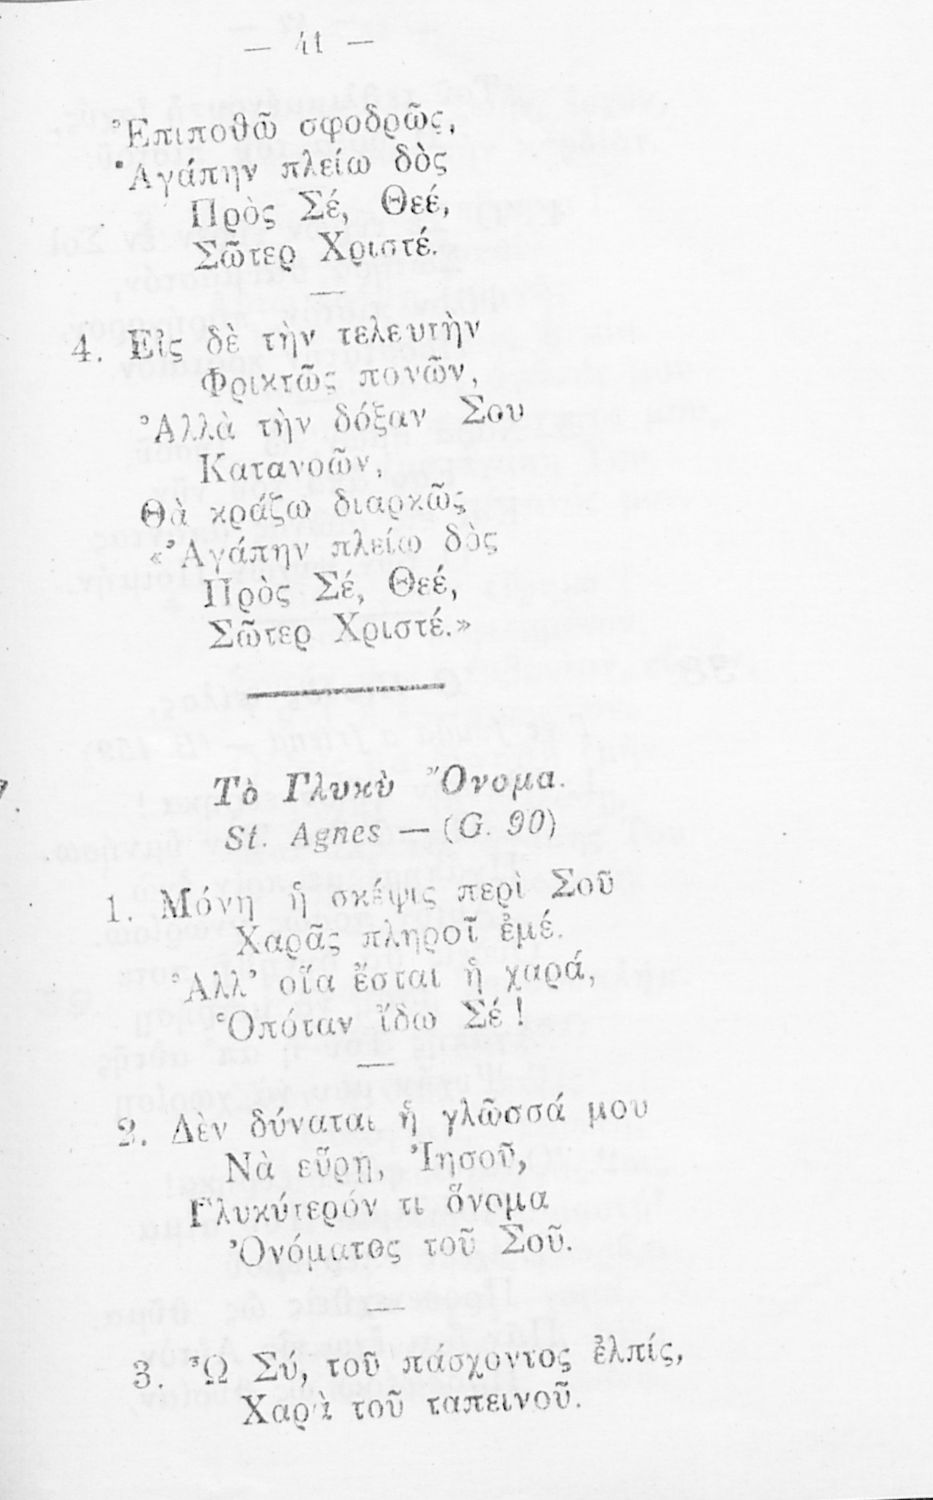 — 41 —
Ἐπιποθῶ σφοδρῶς,
Ἀγάπην πλείω δὸς
Πρὸς Σέ, Θεέ,
Σῶτερ Χριστέ.
4. Εἰς δὲ τὴν τελευτὴν
Φρικτῶς πονῶν,
Ἀλλὰ τὴν δόξαν Σου
Κατανοῶν,
Θὰ κράζω διαρκῶς
«Ἀγάπην πλείω δὸς
Πρὸς Σέ, Θεέ,
Σῶτερ Χριστέ.»
Τὸ Γλυκὺ Ὄνομα.
St. Agnes — (G. 90)
1. Μόνη ἡ σκέψις περὶ Σοῦ
Χαρᾶς πληροῖ ἐμέ.
Ἀλλ’ οἵα ἔσται ἡ χαρά,
Ὁπόταν ἴδω Σέ!
2. Δὲν δύναται ἡ γλῶσσά μου
Νὰ εὕρῃ, Ἰησοῦ,
Γλυκύτερόν τι ὄνομα
Ὀνόματος τοῦ Σοῦ.
3. Ὦ Σύ, τοῦ πάσχοντος ἐλπίς,
Χαρὰ τοῦ ταπεινοῦ.